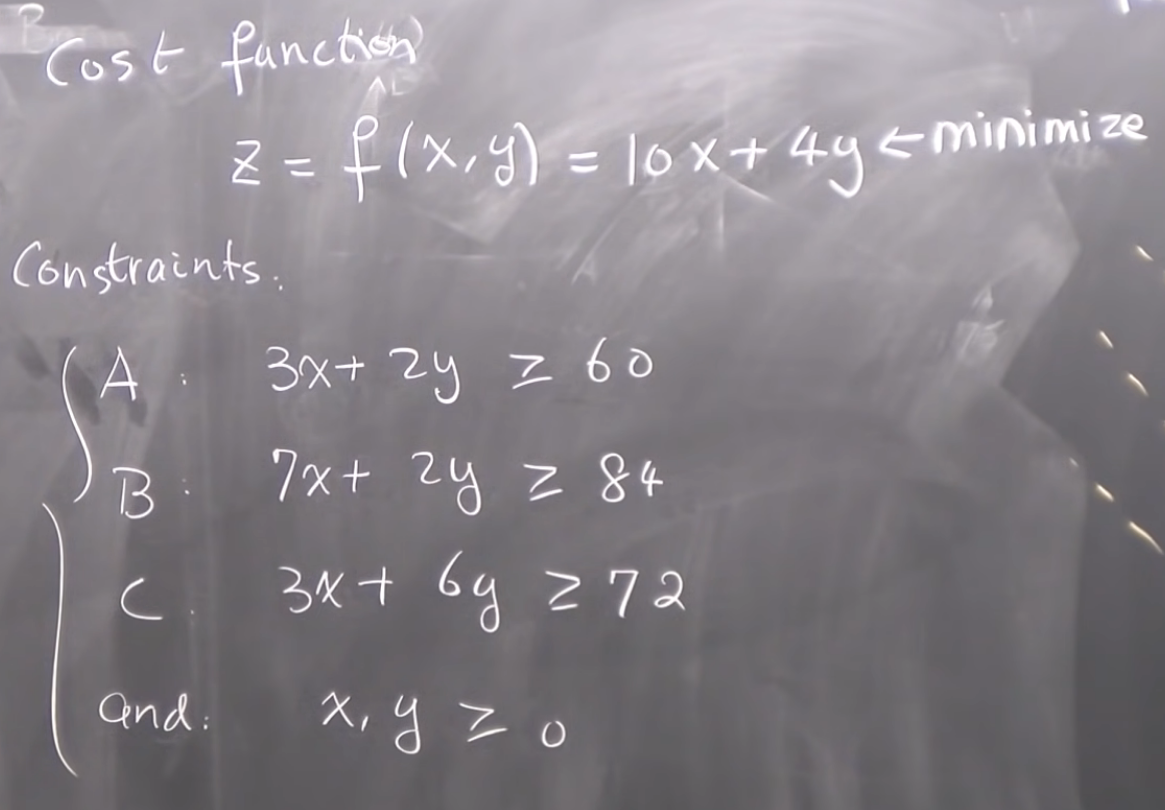 Cost function
z = f(x,y) = 10x + 4y ← minimize
Constraints.
A : 3x + 2y ≥ 60
B : 7x + 2y ≥ 84
C . 3x + 6y ≥ 72
and: x, y ≥ 0